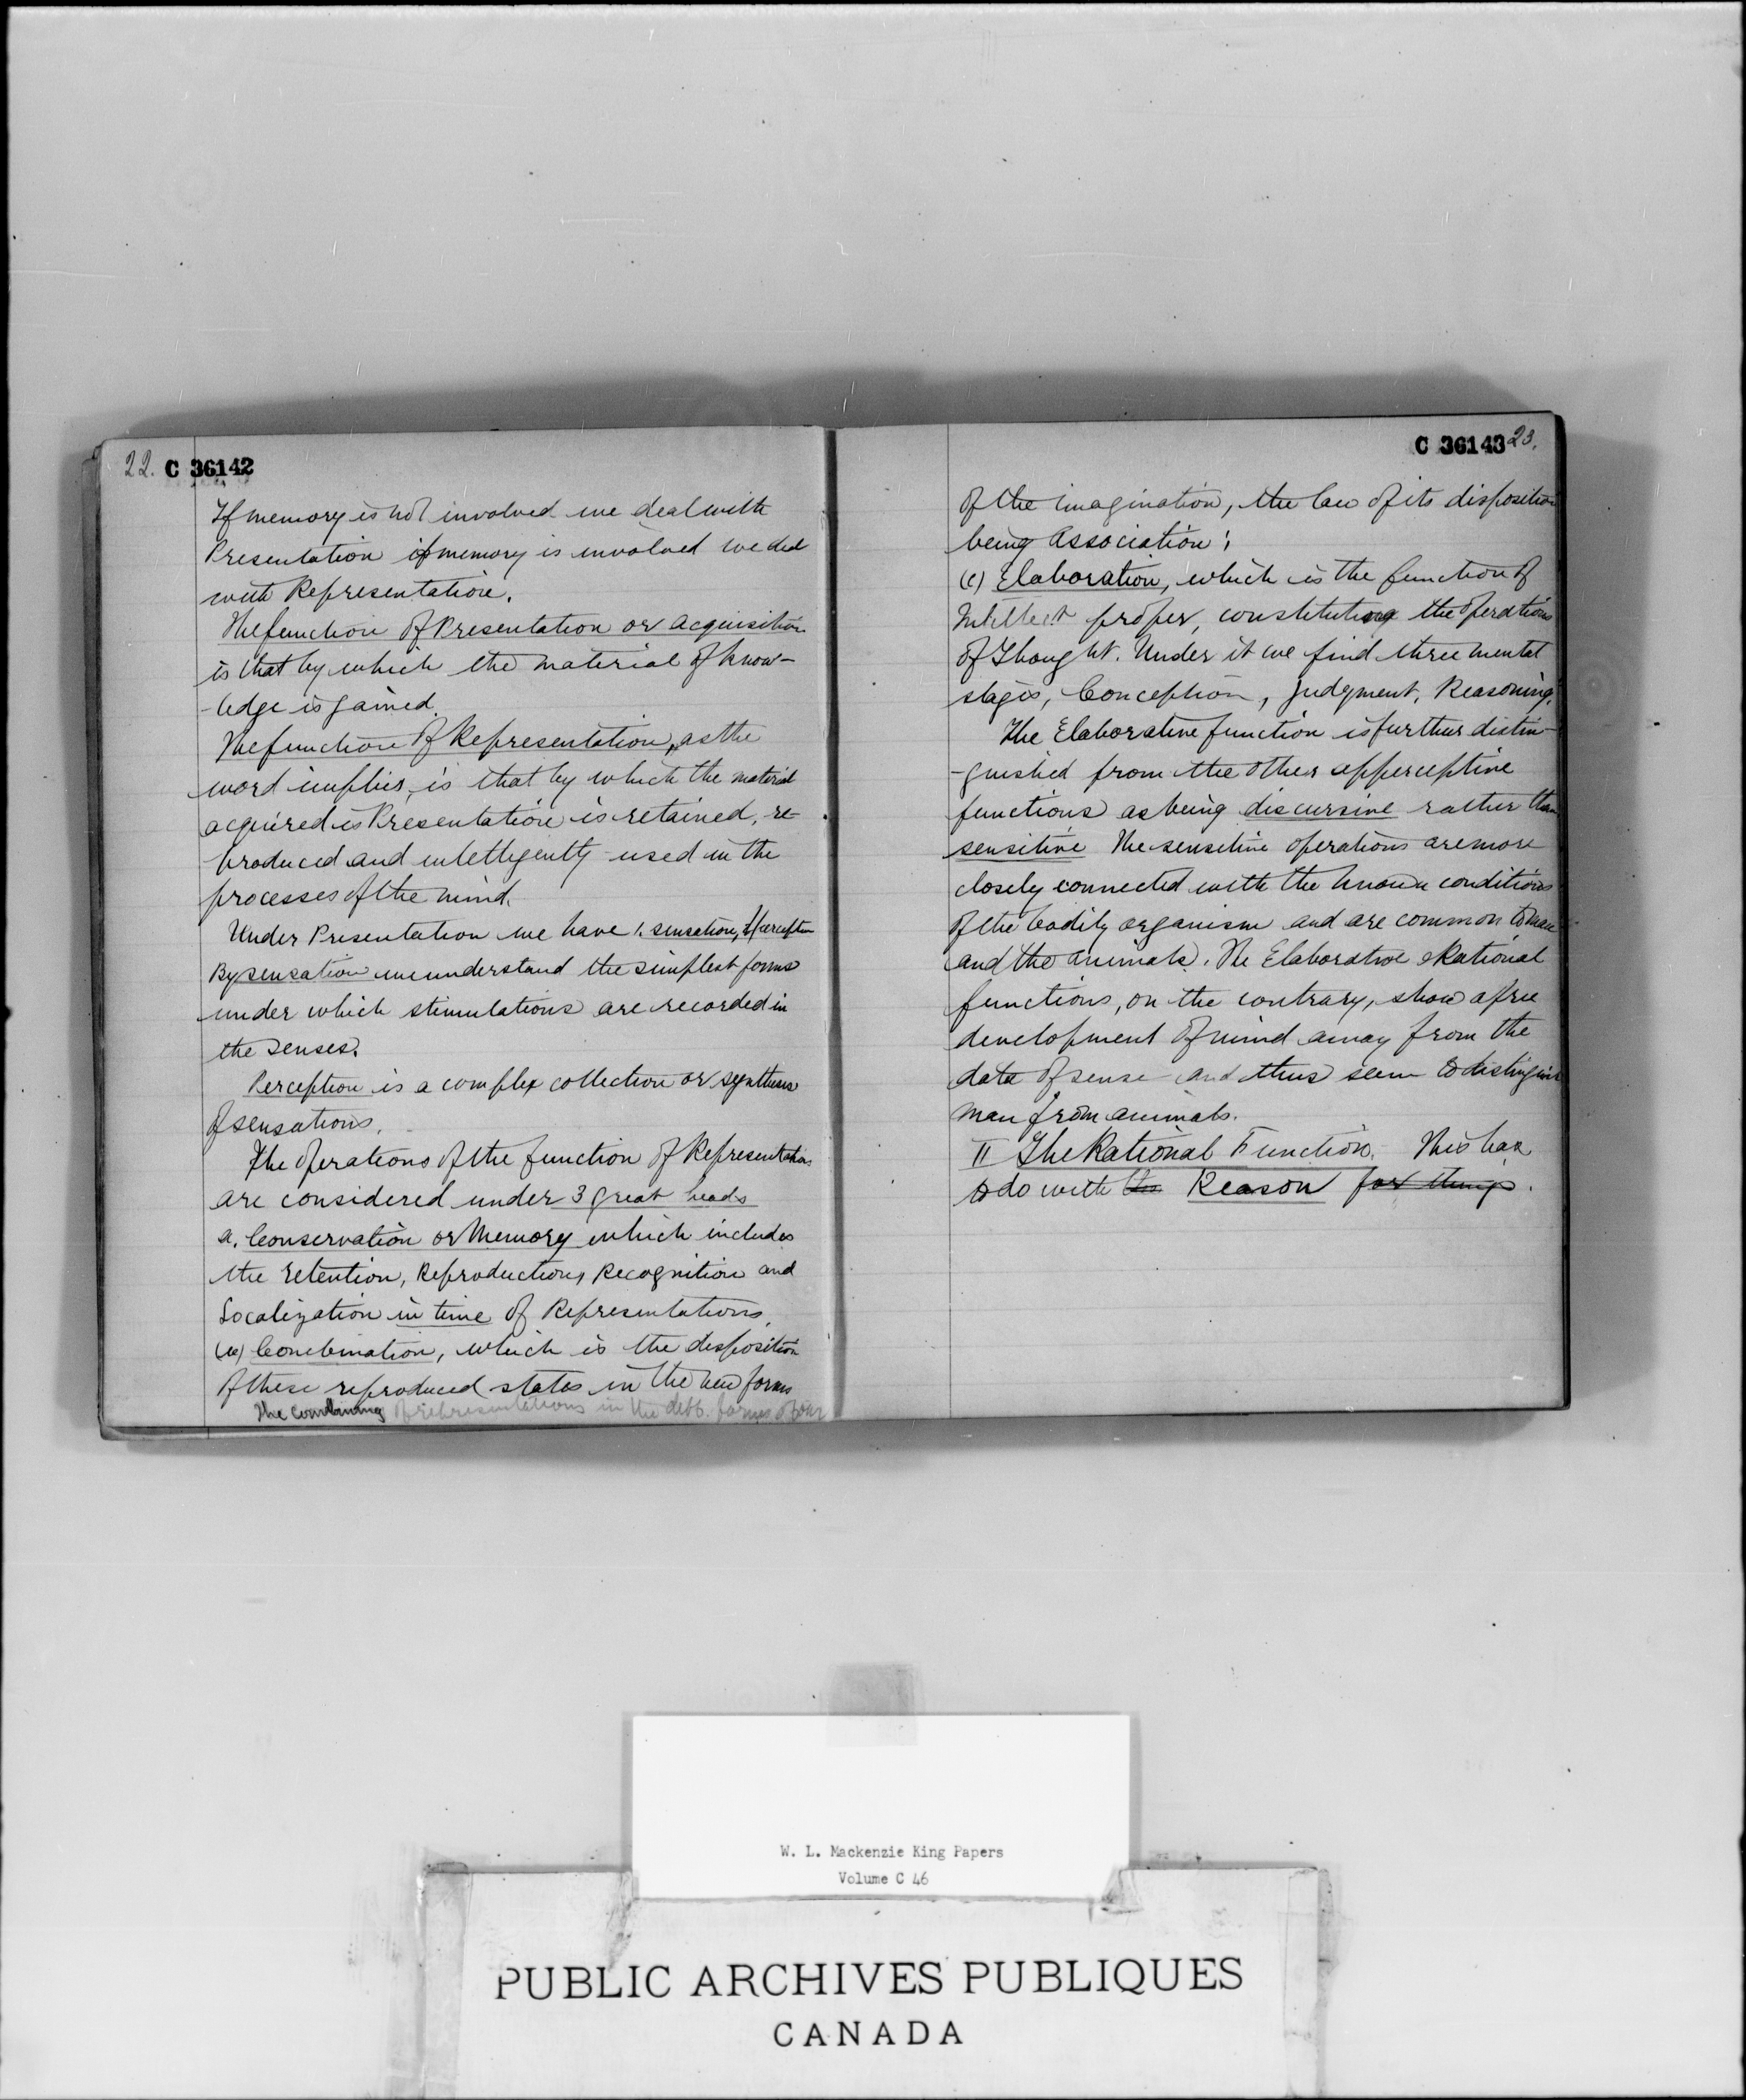 22. C 36142
If memory is not involved we deal with
Presentation if memory is involved we deal
with Representation.
The function of Presentation or acquisition
is that by which the material of know-
-ledge is gained.
The function of Representation, as the
word implies, is that by which the material
acquired is Presentation is retained, re-
-produced and intelligently used in the
processes of the mind.
Under Presentation we have 1. sensation, 2 perception
By sensation we understand the simplest forms
under which stimulations are recorded in
the senses.
Perception is a complex collection or synthesis
of sensations.
The operations of the function of Representation
are considered under 3 great heads
a. Conservation or Memory which includes
the retention, Reproduction, Recognition and
Localization in time of Representations.
Combination, which is the disposition
of these reproduced states in the new forms
The combining of representations in the diff. forms of our
C 36143 23.
of the imagination, the law of its disposition
being Association;
(c) Elaboration, which is the function of
Intellect proper, constituting the operations
of Thought. Under it we find three mental
stages, Conception, Judgment, Reasoning.
The Elaborative function is further distin-
-guished from the other apperceptive
functions as being discursive rather than
sensitive The sensitive operations are more
closely connected with the known conditions
of the bodily organism and are common to man
and the animals. The Elaborative & Rational
functions, on the contrary, show a free
development of mind away from the
data of sense and thus seem to distinguish
man from animals.
II The Rational Function. This has
to do with the Reason for things.
W. L. Mackenzie King Papers
Volume C 46
PUBLIC ARCHIVES PUBLIQUES
CANADA